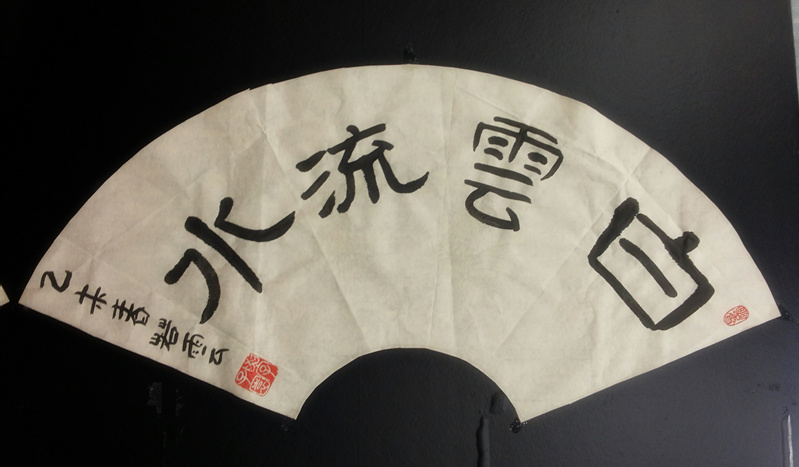 白雲流水
乙未春雲